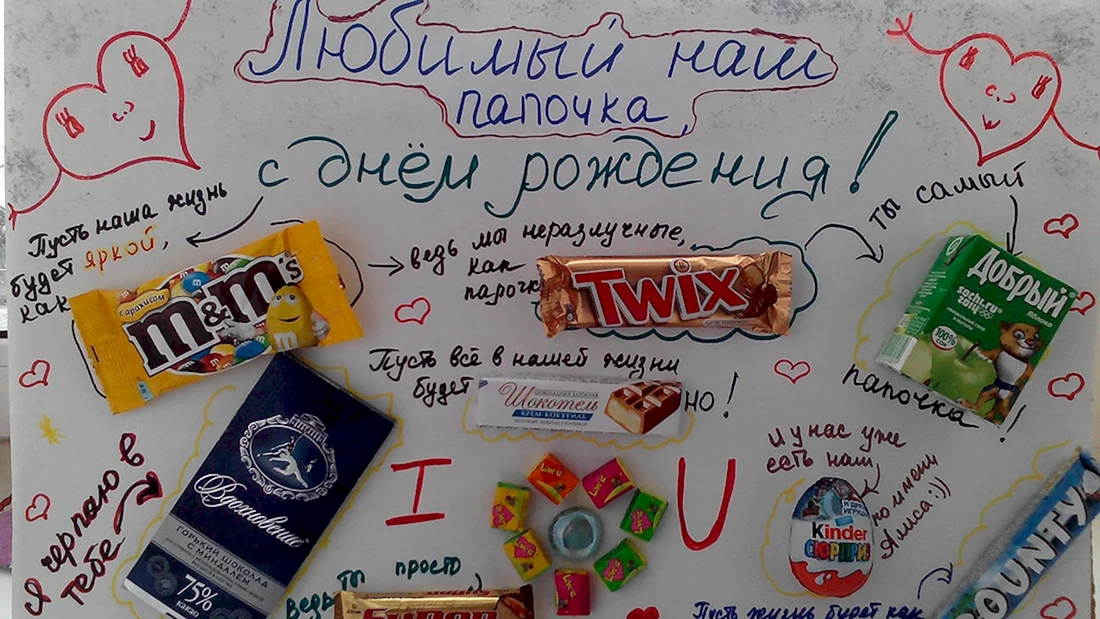 Любимый наш
папочка,
с днём рождения!
Пусть наша жизнь
будет яркой,
как
с арахисом
m&m's
ведь мы неразлучные,
как
парочка
TWIX
ты самый
Добрый
ЯБЛОКО
sochi.ru
2014
100%
СОК
папочка!
Пусть всё в нашей жизни
будет
Шокотель
КРЕМ-КОКТЕЙЛЬ
но!
Я черпаю в
тебе
Вдохновение
ГОРЬКИЙ ШОКОЛАД
С МИНДАЛЕМ
75%
какао
I
Love is
U
И у нас уже
есть наш
Kinder
СЮРПРИЗ
по имени
Алиса:))
BOUNTY
ты просто
ведь
Супер
Пусть жизнь будет как